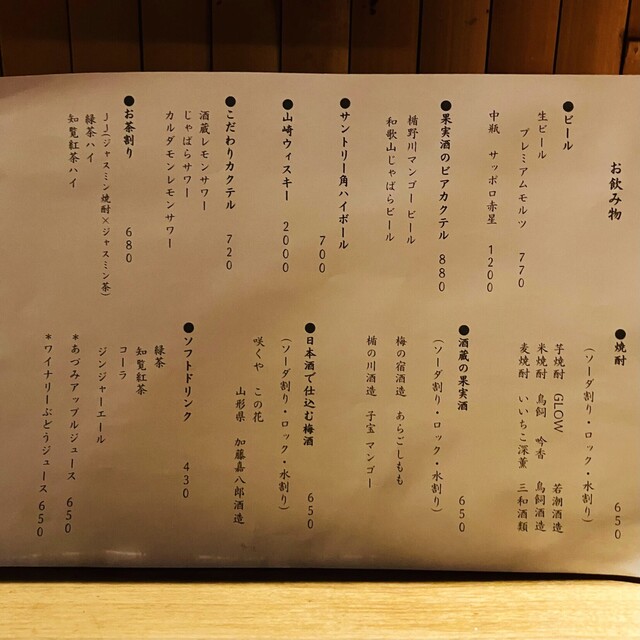 お飲み物
●ビール
生ビール
プレミアムモルツ 770
中瓶 サッポロ赤星 1200
●果実酒のビアカクテル 880
楯野川マンゴービール
和歌山じゃばらビール
●サントリー角ハイボール
700
●山崎ウィスキー 2000
●こだわりカクテル 720
酒蔵レモンサワー
じゃばらサワー
カルダモンレモンサワー
●お茶割り 680
JJ(ジャスミン焼酎×ジャスミン茶)
緑茶ハイ
知覧紅茶ハイ
●焼酎 650
(ソーダ割り・ロック・水割り)
芋焼酎 GLOW 若潮酒造
米焼酎 鳥飼 吟香 鳥飼酒造
麦焼酎 いいちこ深薫 三和酒類
●酒蔵の果実酒 650
(ソーダ割り・ロック・水割り)
梅の宿酒造 あらごしもも
楯の川酒造 子宝マンゴー
●日本酒で仕込む梅酒 650
(ソーダ割り・ロック・水割り)
咲くや この花
山形県 加藤嘉八郎酒造
●ソフトドリンク 430
緑茶
知覧紅茶
コーラ
ジンジャーエール
*あづみアップルジュース 650
*ワイナリーぶどうジュース 650